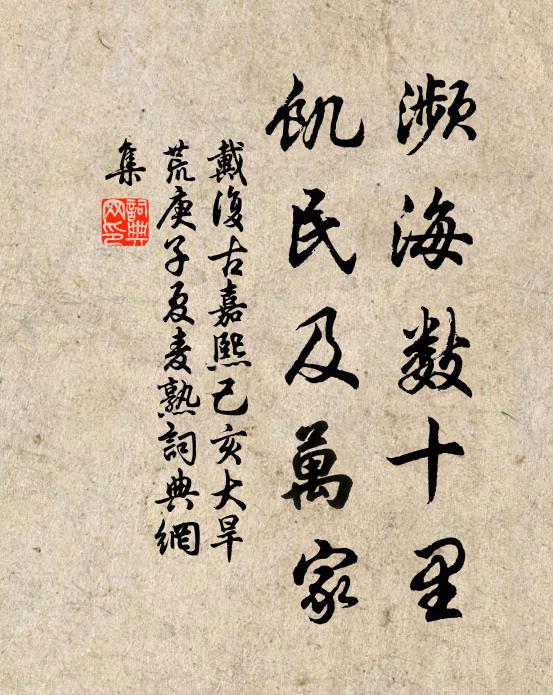 瀕海數十里
飢民及萬家
戴復古嘉熙己亥大旱
荒庚子夏麦熟詞典網
集
詞典
网印